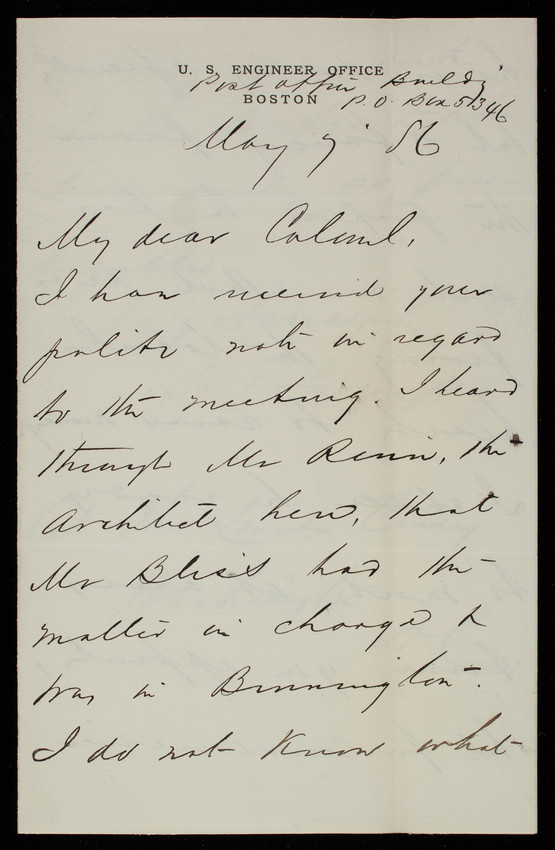 U. S. ENGINEER OFFICE
Post Office Build'g
BOSTON P.O. Box 5346
May 7' 86
My dear Colonel,
I have received your
polite note in regard
to the meeting. I heard
through Mr the
Architect here, that
Mr had the
matter in charge &
was in Bennington.
I do not know what